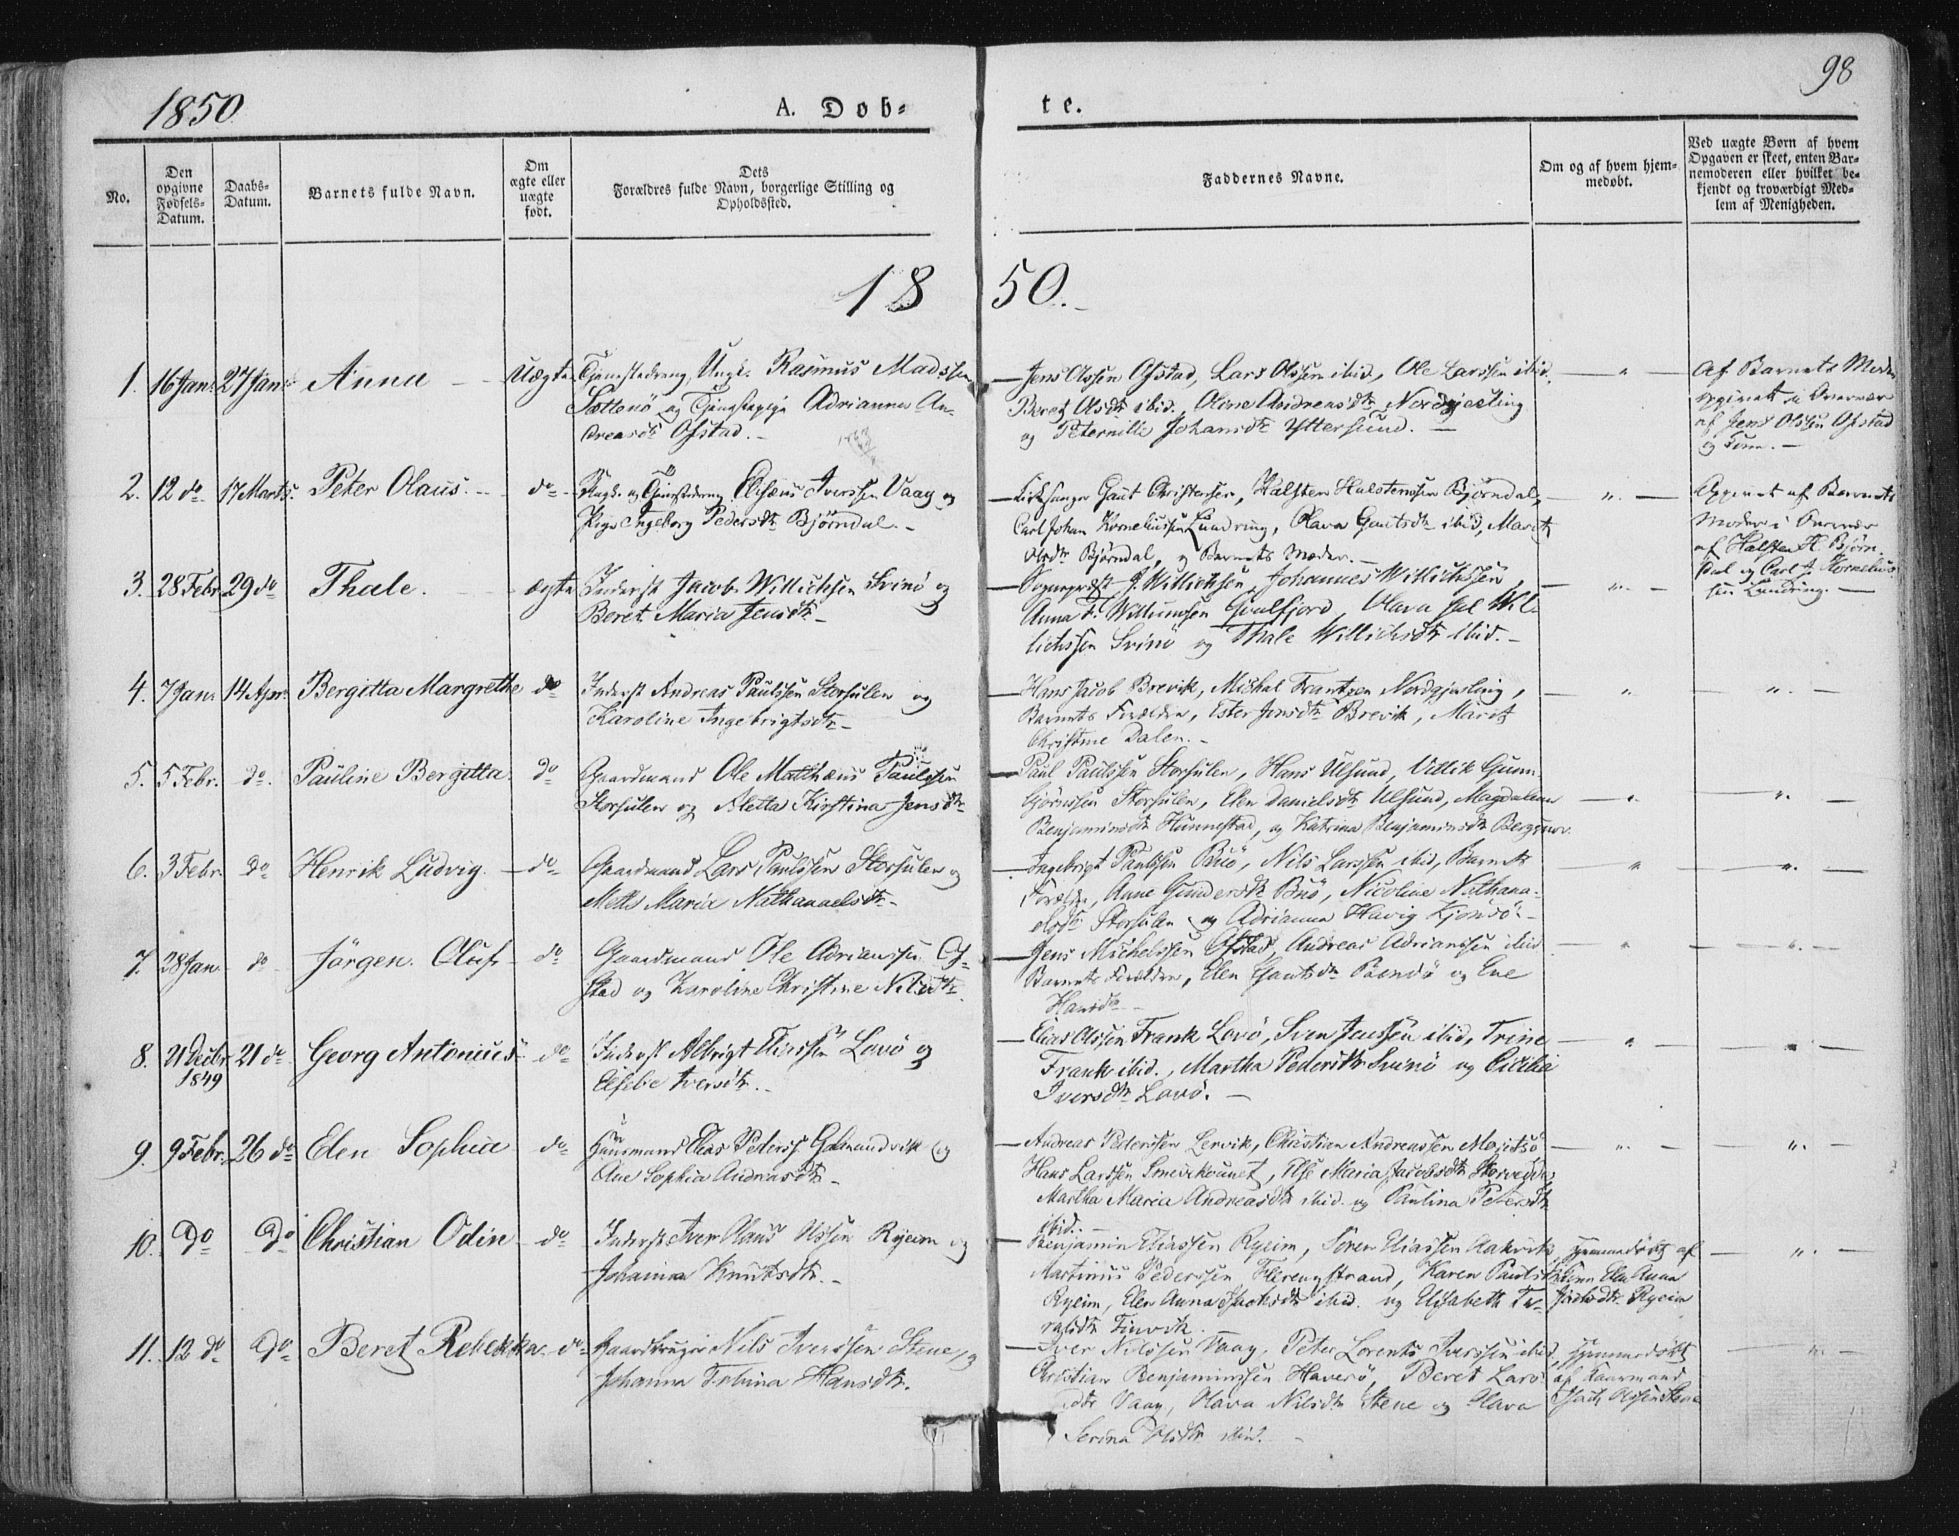 1850
A. Dob-
te.
98
No.
Den opgivne Fødsels-Datum.
Daabs-Datum.
Barnets fulde Navn.
Om ægte eller uægte født.
Dets Forældres fulde Navn, borgerlige Stilling og Opholdssted.
Faddernes Navne.
Om og af hvem hjem-medøbt.
Ved uægte Børn af hvem Opgaven er skeet, enten Bar-nemoderen eller hvilket be-kjendt og troværdigt Med-lem af Menigheden.
1850.
1. 16 Jan: 27 Jan: Anna Uægte Tjenestedreng, Ungk. Rasmus Madssen
og Tjenestepige Adrianna An-
dreasdtr Ofstad.
Jens Olssen Ofstad, Lars Olssen ibid, Ole Larssen ibid.
Beret Olsdtr ibid., Oline Andreasdtr Nordgjesling
og Peternille Johansdtr Yttersund.
Af Barnets Moder
opgivet i Overvær
af Jens Olssen Ofstad
og Fonn.
2. 12 do 17 Marts. Peter Olaus. do Ungk. og Tjenestedreng Elisæus Iverssen Vaag og
Pige Ingeborg Pedersdtr Bjørndal.
Kirkesanger Gaut Christensen, Halsten Halstenssen Bjørndal,
Carl Johan Korneliussen Lundring, Olava Gautsdtr ibid, Marit
Olsdtr Bjørndal, og Barnets Moder.
Opgivet af Barnets
Moder i Overvær
af Halsten H. Bjørn-
dal og Carl J. Kornelius-
sen Lundring.
3. 28 Febr 29 do Thale. ægte Inderst Jacob Willichsen Svinø og
Beret Maria Jensdtr
Sogneprest J. Willichsen, Johannes Willichssen
Anna Willumsen Hvalfjord, Olava Wil-
lichssen Svinø og Thale Willichsdtr ibid.
4. 7 Jan: 14 Apr: Bergitta Margrethe do Inderst Andreas Paulssen Storsulen og
Karoline Ingebrigtsdtr
Hans Jacob Brevik, Michal Frantzen Nordgjesling,
Barnets Forældre, Ester Jonsdtr Brevik, Marit
Christine Dalen.
5. 5 Febr. do. Pauline Bergitta do Gaardmand Ole Matthæus Paulssen
Storsulen og Aletta Kirstina Jensdtr
Paul Paulssen Storsulen, Hans Ulsund, Vittik Gunn-
bjørnssen Storsulen, Elen Danielsdtr Ulsund, Magdalena
Benjaminsdtr Hunnestad, og Katrina Benjaminsdtr
6. 3 Febr. do Henrik Ludvig. do Gaardmand Lars Paulssen Storsulen og
Mette Maria Nathanaelsdtr
Ingebrigt Paulssen Buø, Nils Larssen ibid, Barnets
Forældre, Anne Gundersdtr Buø, Nicoline Nathana-
elsdtr Storsulen og Adrianna Havig Kjønsø.
7. 28 Jan do Jørgen Oluf do Gaardmand Ole Adrianssen Of-
stad og Karoline Christine Nilsdtr.
Jens Michelssen Ofstad, Andreas Adrianssen ibid
Barnets Forældre, Elen Gautsdtr og Ene
Hansdtr
8. 21 Decbr 1849 21 do Georg Antonius do Inderst Albrigt Eliassen Lovø og
Elsebe Iversdtr.
Elias Olssen Frank Lovø, Sven Jenssen ibid, Trine
Frank ibid., Martha Pedersdtr Svinø og Cicilia
Iversdtr Lovø.
9. 9 Febr. 26 do Elen Sophia do Huusmand Elias Pederss Gudmundsvik og
Ane Sophia Andreasdtr
Andreas Pederssen Lervik, Christian Andreassen
Hans Larssen Smevikounet, Else Maria Jacobsdtr
Martha Maria Andreasdtr ibid. og Paulina Petersdtr
ibid.
10. Do Do Christian Odin do Inderst Iver Olaus Olssen Ryeim og
Johanna Knutsdtr.
Benjamin Eliassen Ryeim, Søren Eliassen
Martinus Pederssen Herengstrand, Karen Paulsdtr
Ryeim, Elen Anna Isaksdtr ibid. og Elisabeth To-
raldtr Finvik
Hjemmedøbt af
Elen Anna
Isaksdtr. Ryeim
11. 12 do Do Beret Rebekka do Gaardbruger Nils Iverssen Stene, og
Johanna Tobina Hansdtr.
Iver Nilssen Vaag, Peter Lorents Iverssen ibid,
Christian Benjaminssen Haversø, Beret Lars-
ddtr Vaag, Olava Nilsdtr Stene og Olava
Serina Olsdtr ibid.
Hjemmedøbt
af Kaarmand
Isach Olssen Stene